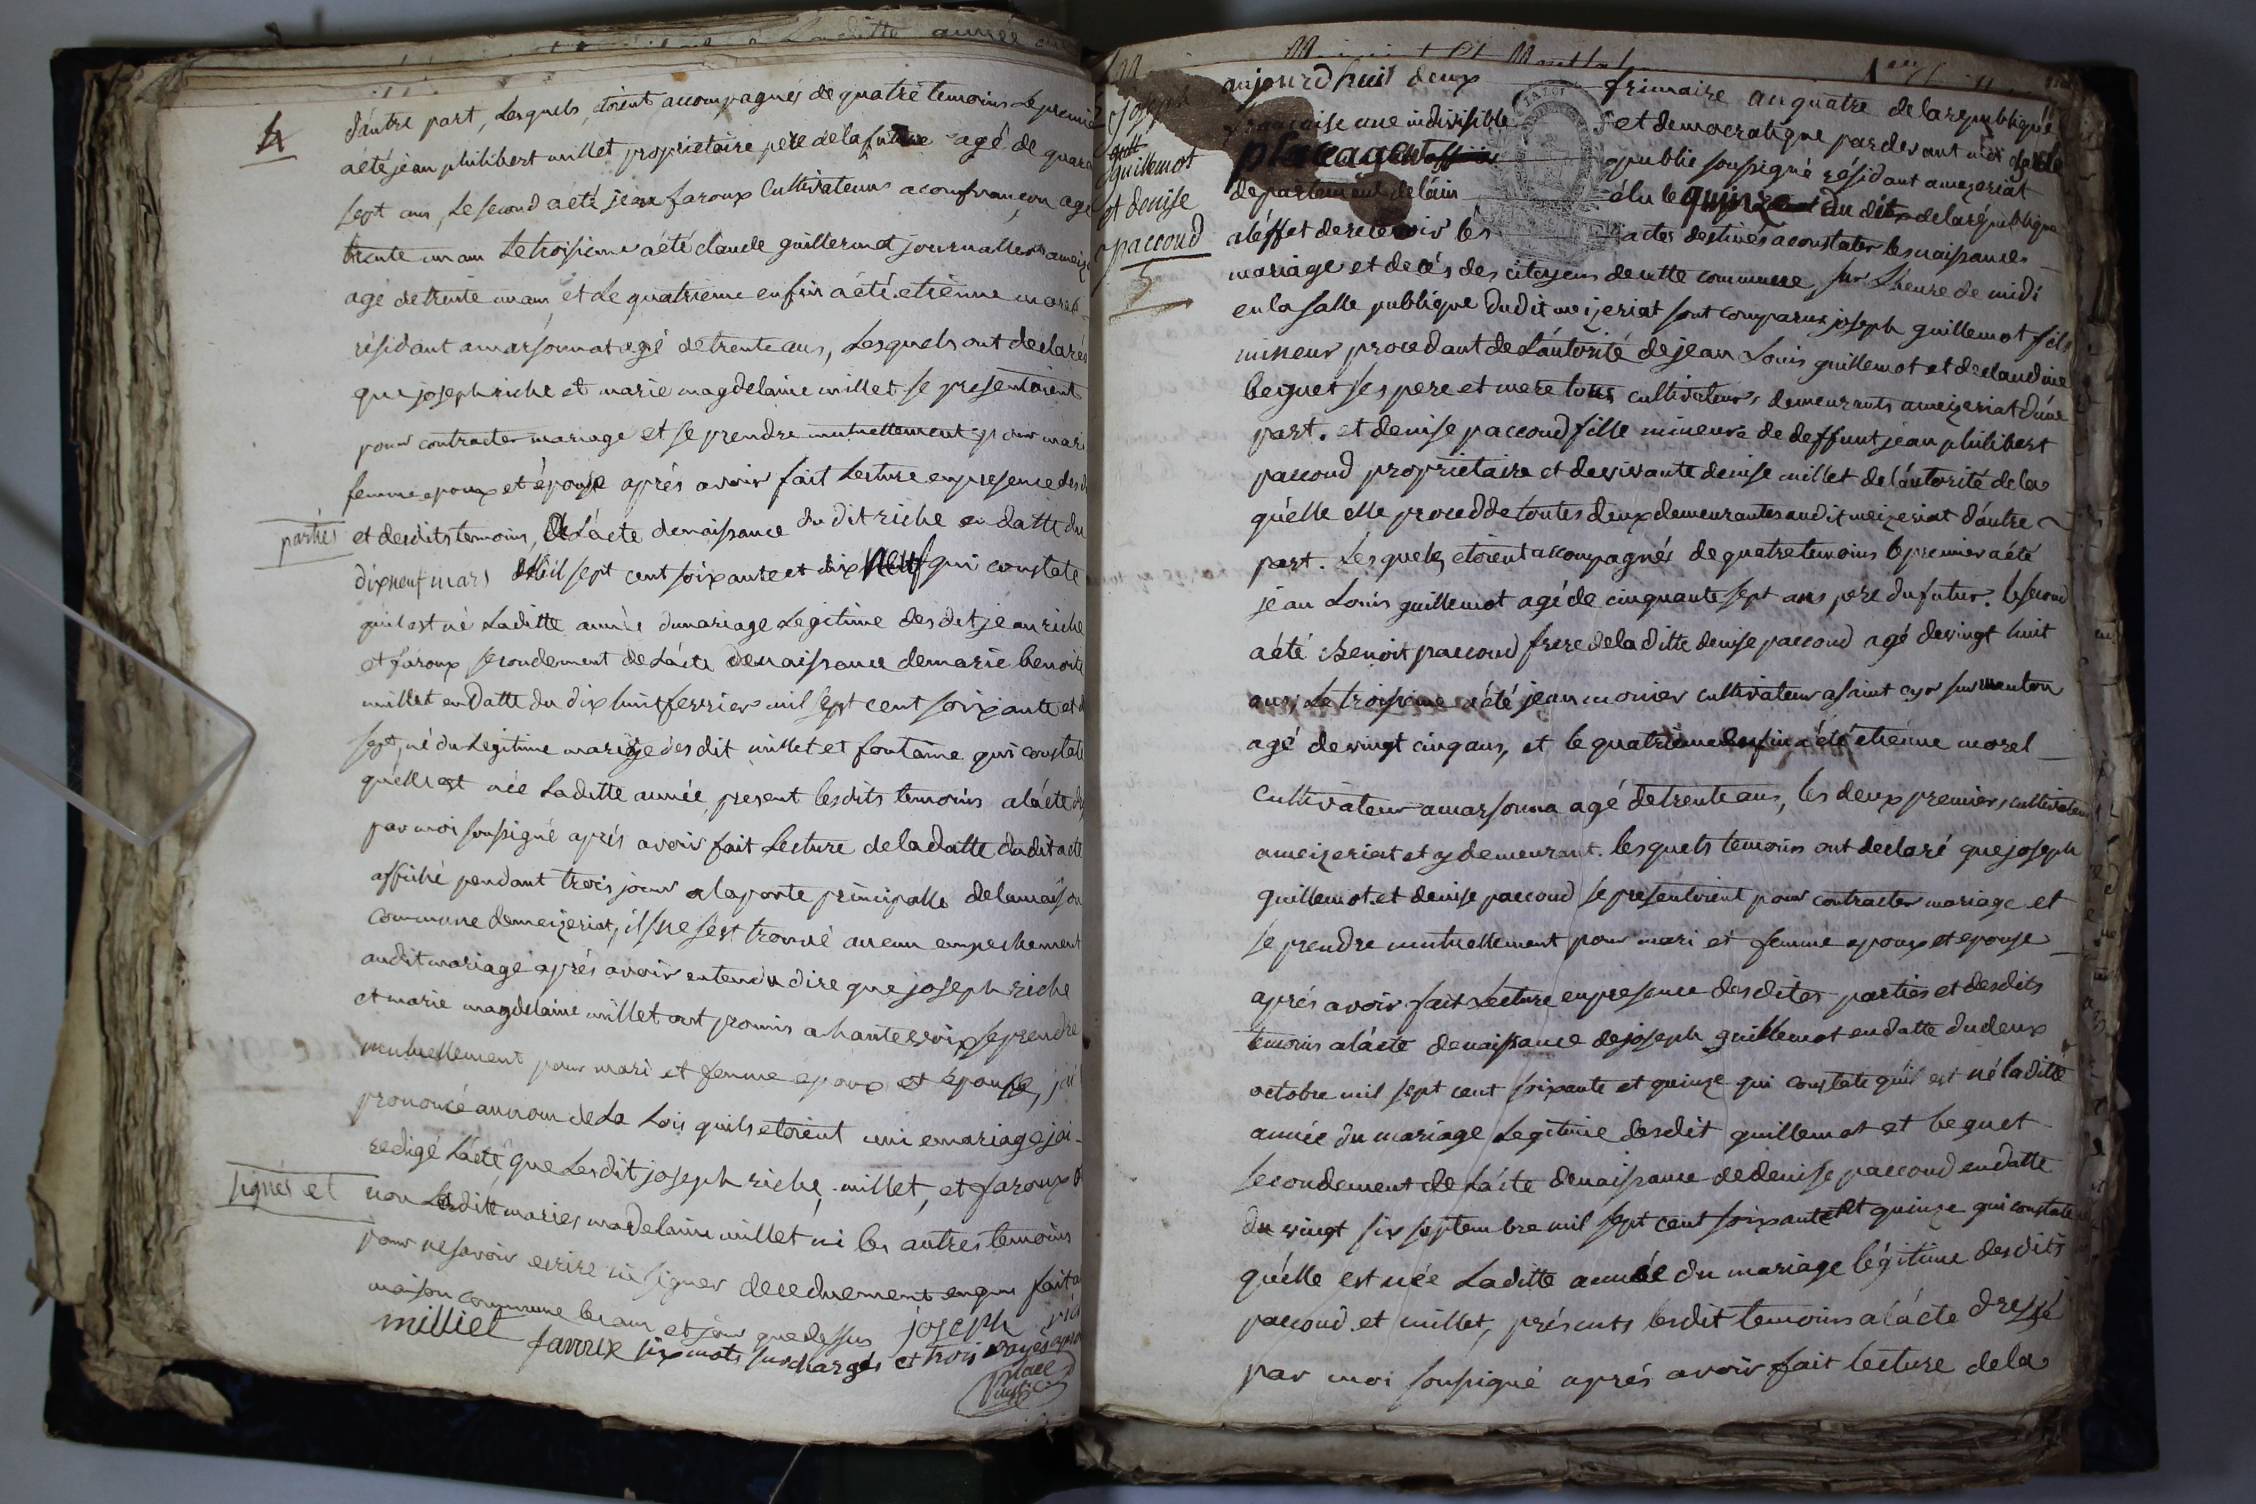 4
d'autre part, Lesquels, etoient accompagnés de quatre temoins Le premie
a été jean philibert millet proprietaire pere de la future agé de quara
sept ans, Le second a été jean faroux Cultivateur a confrançon agé
trente un ans Le troisieme a été claude guillermot journallier a meiz
agé de trente un ans, et Le quatrieme enfin a été etienne morel
résidant a marsonnat agé de trente ans, Lesquels ont declarés
que joseph riche et marie magdelaine millet se presentoient
pour contracter mariage et se prendre mutuellement pour mari
femme epoux et épouse aprés avoir fait Lecture en presence des d
parties et desdits temoins, de L'acte de naissance du dit riche en datte du
dix neuf mars mil sept cent soixante et dix neuf qui constate
quil est né Laditte année du mariage Legitime desdit jean riche
et faroux secondement de L'acte de naissance de marie benoite
millet en Datte du dix huit fevrier mil sept cent soixante et d
sept, né du Legitime mariage desdit millet et fontaine qui constate
qu'elle est née Laditte année, present lesdits temoins a l'acte d
par moi soussigné aprés avoir fait Lecture de la datte dudit acte
affiché pendant trois jours a la porte principalle de la maison
commune de meizeriat, il ne s'est trouvé aucun empechement
audit mariage aprés avoir entendu dire que joseph riche
et marie magdelaine millet ont promis a haute voix se prendre
mutuellement pour mari et femme epoux et épouse, j'ai
prononcé au nom de La Lois quils etoient uni en mariage jai
redigé L'acte que Lesdit joseph riche, millet, et faroux o
signés et non Laditte maries madelaine millet ni les autres temoins
pour ne savoir ecrire ni signer de ce duement enquis fait a
maison commune les an et jour que dessus joseph ric
milliet
faroux six mots surchargés et trois rayés appr
place
joseph
guill
guillemot
et denise
paccoud
5
aujourd'huit deux frimaire an quatre de la republique
française une indivisible et democratique pardevant moi
place agent public soussigné résidant a mezeriat
departement de l'ain élu le quinze du dit de la république
a l'éffet de recevoir lés actes destinés a constater les naissances
mariage et decés des citoyens de cette commune, sur L'heure de midi
en la salle publique dudit meizeriat sont comparus joseph guillemot fils
mineur procedant de L'autorité de jean Louis guillemot et de claudine
beguet ses pere et mere tous cultivateurs demeurants a meizeriat d'une
part. et denise paccoud fille mineure de deffunt jean philibert
paccoud proprietaire et de vivante denise millet de l'autorité de la
qu'elle elle procedde toutes deux demeurantes audit meizeriat d'autre
part. Lesquels etoient accompagnés de quatre temoins le premier a été
jean Louis guillemot agé de cinquante sept ans pere du futur. le second
a été Benoit paccoud frere de la ditte denise paccoud agé de vingt huit
ans, Le troisieme a été jean monier cultivateur a saint cyr sur menton
agé de vingt cinq ans, et le quatrieme enfin a été etienne morel
Cultivateur a marsonna agé de trente ans, les deux premiers cultivateur
a meizeriat et y demeurant. lesquels temoins ont declaré que joseph
guillemot et denise paccoud se presentoient pour contracter mariage et
se prendre mutuellement pour mari et femme epoux et epouse
aprés avoir fait Lecture en presence desdites parties et desdits
temoins a l'acte de naissance de joseph guillemot en datte du deux
octobre mil sept cent soixante et quinze qui constate quil est né laditte
année du mariage Legitime desdit guillemot et beguet
secondement de L'acte de naissance de denise paccoud en datte
du vingt six septembre mil sept cent soixante et quinze qui constate
qu'elle est née Laditte année du mariage légitime desdits
paccoud et millet, présents lesdit temoins a l'acte dressé
par moi soussigné aprés avoir fait lecture de la